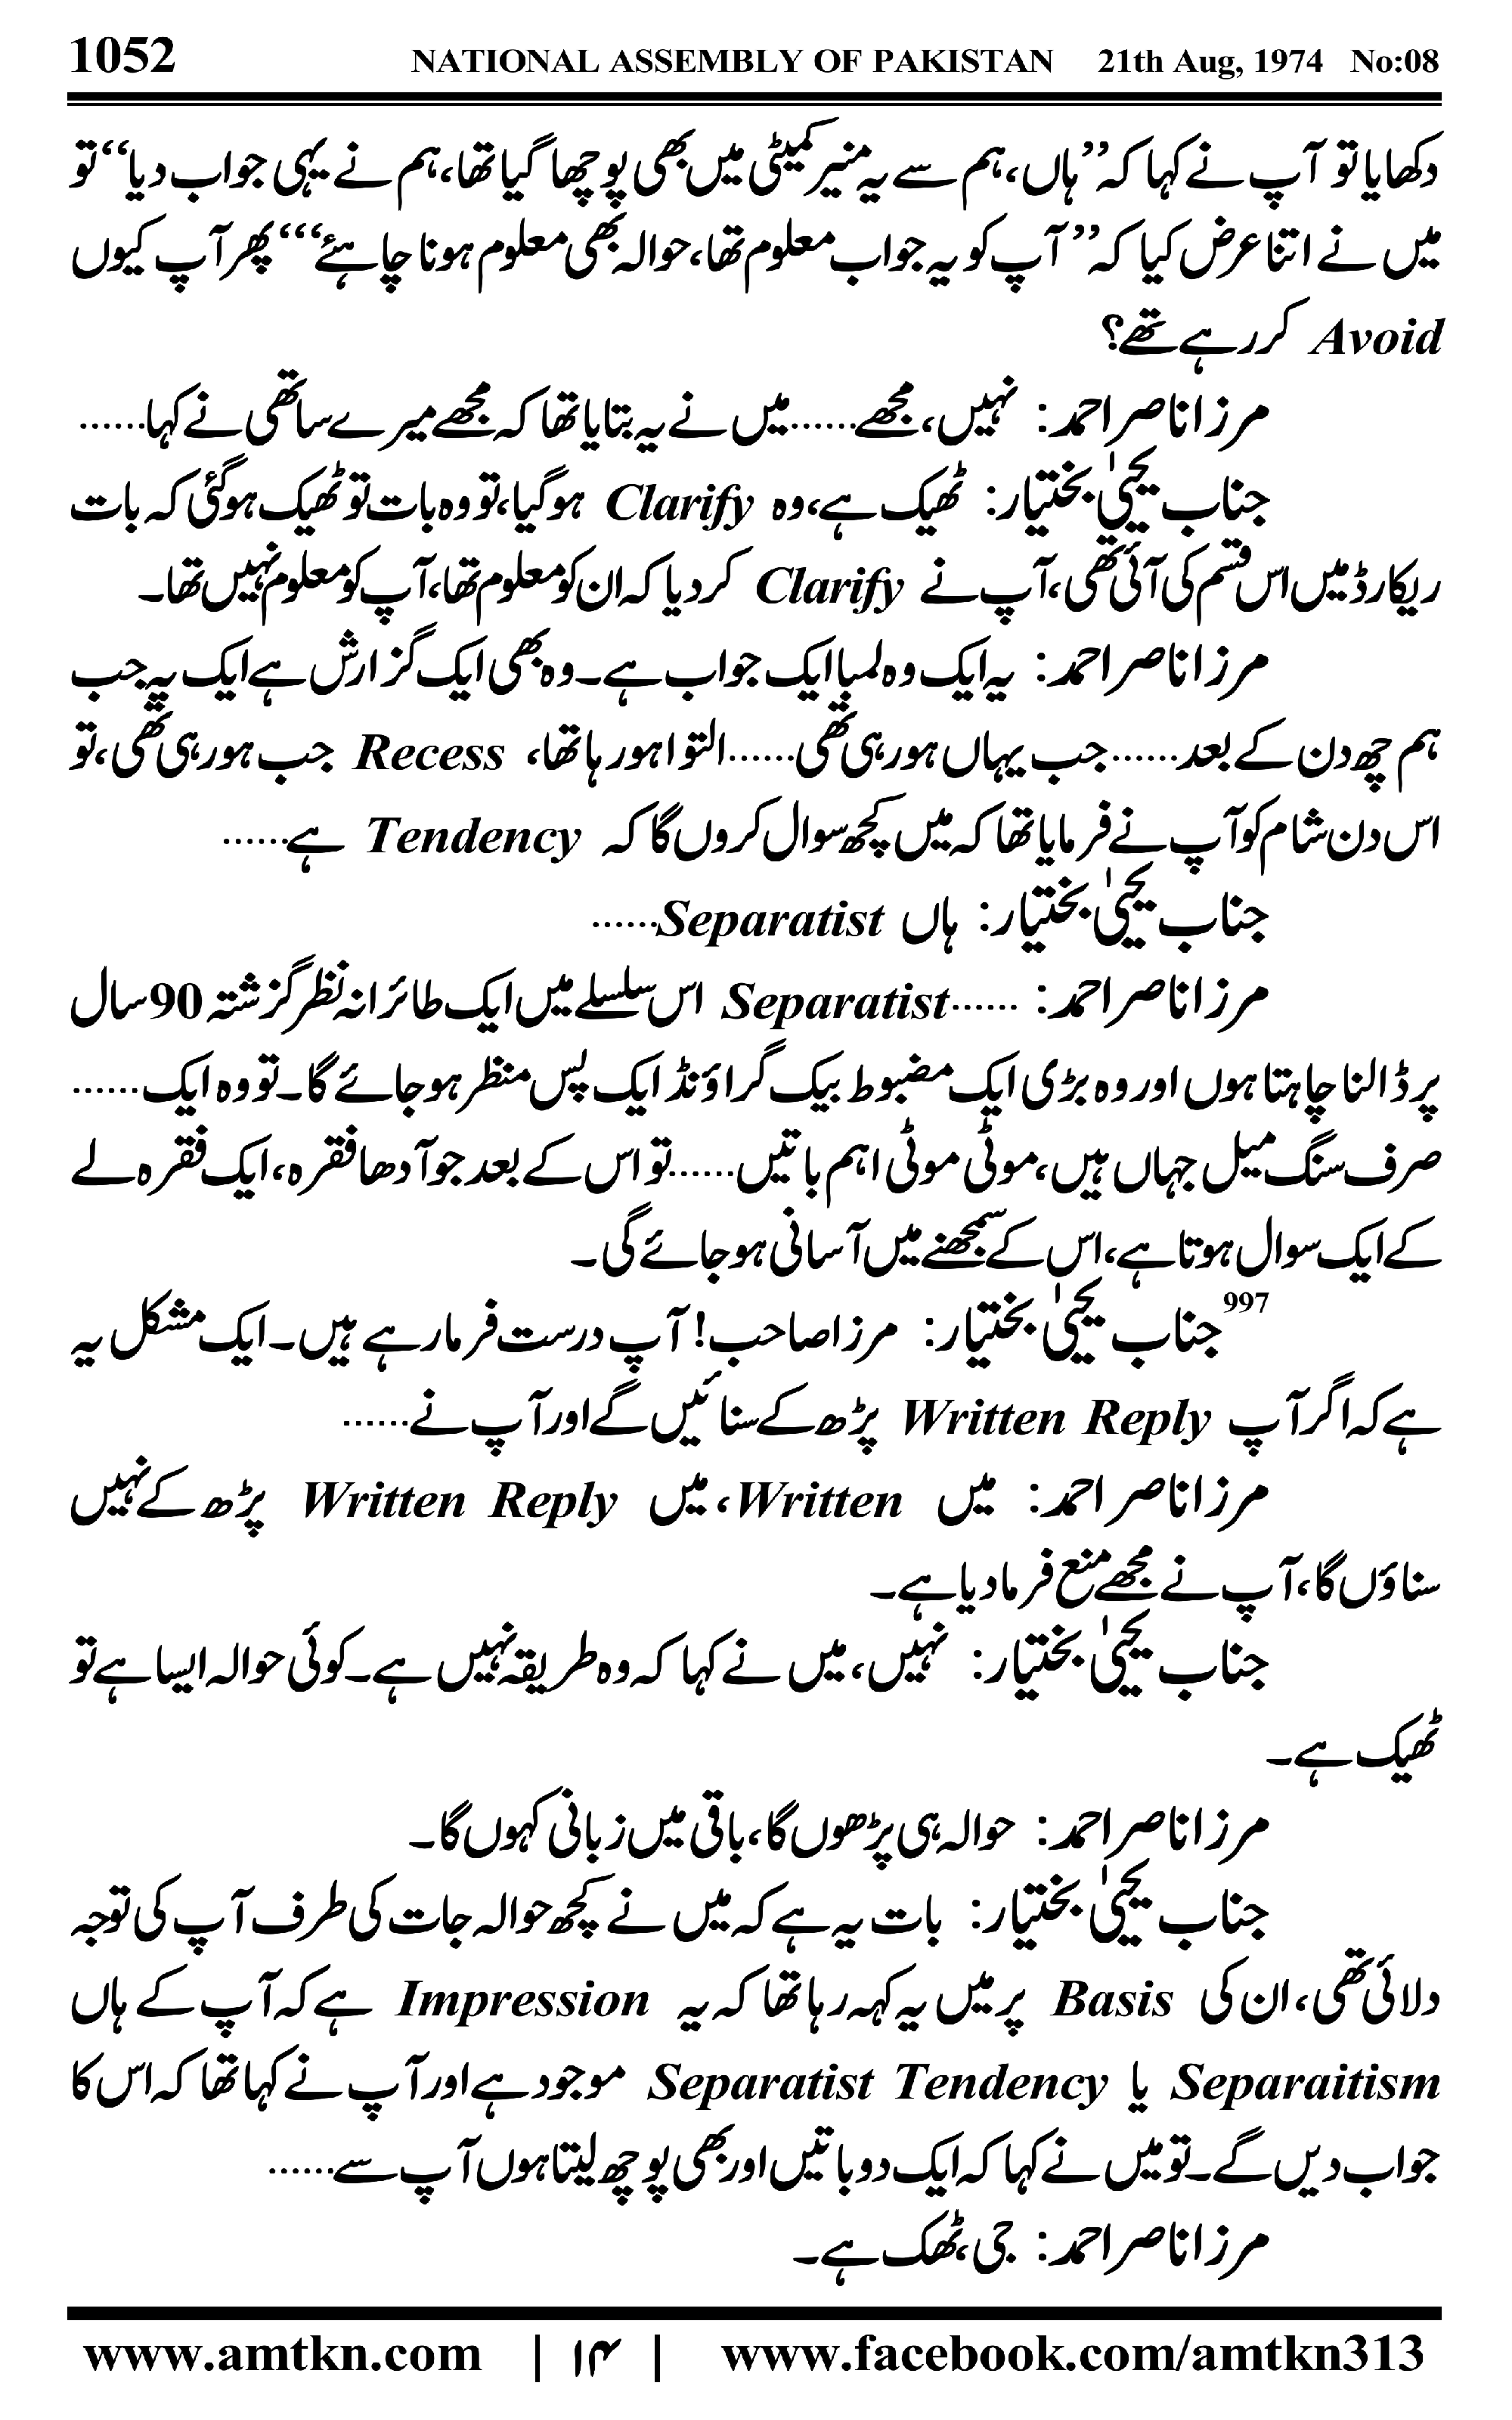 1052 NATIONAL ASSEMBLY OF PAKISTAN 21th Aug, 1974 No:08
دکھایا تو آپ نے کہا کہ ’’ہاں، ہم سے یہ منیر کمیٹی میں بھی پوچھا گیا تھا، ہم نے یہی جواب دیا‘‘ تو
میں نے اتنا عرض کیا کہ ’’آپ کو یہ جواب معلوم تھا، حوالہ بھی معلوم ہونا چاہئے‘‘‘ پھر آپ کیوں
Avoid کر رہے تھے؟
مرزا ناصر احمد: نہیں، مجھے...... میں نے یہ بتایا تھا کہ مجھے میرے ساتھی نے کہا......
جناب یحییٰ بختیار: ٹھیک ہے، وہ Clarify ہوگیا، تو وہ بات تو ٹھیک ہوگئی کہ بات
ریکارڈ میں اس قسم کی آئی تھی، آپ نے Clarify کردیا کہ ان کو معلوم تھا، آپ کو معلوم نہیں تھا۔
مرزا ناصر احمد: یہ ایک وہ لمبا ایک جواب ہے۔ وہ بھی ایک گزارش ہے ایک یہ جب
ہم چھ دن کے بعد...... جب یہاں ہورہی تھی...... التوا ہورہا تھا، Recess جب ہورہی تھی، تو
اس دن شام کو آپ نے فرمایا تھا کہ میں کچھ سوال کروں گا کہ Tendency ہے......
جناب یحییٰ بختیار: ہاں Separatist......
مرزا ناصر احمد: ......Separatist اس سلسلے میں ایک طائرانہ نظر گزشتہ 90 سال
پر ڈالنا چاہتا ہوں اور وہ بڑی ایک مضبوط بیک گراؤنڈ ایک پس منظر ہوجائے گا۔ تو وہ ایک......
صرف سنگ میل جہاں ہیں، موٹی موٹی اہم باتیں...... تو اس کے بعد جو آدھا فقرہ، ایک فقرہ لے
کے ایک سوال ہوتا ہے، اس کے سمجھنے میں آسانی ہوجائے گی۔
997 جناب یحییٰ بختیار: مرزا صاحب! آپ درست فرمارہے ہیں۔ ایک مشکل یہ
ہے کہ اگر آپ Written Reply پڑھ کے سنائیں گے اور آپ نے......
مرزا ناصر احمد: میں Written، میں Written Reply پڑھ کے نہیں
سناؤں گا، آپ نے مجھے منع فرمادیا ہے۔
جناب یحییٰ بختیار: نہیں، میں نے کہا کہ وہ طریقہ نہیں ہے۔ کوئی حوالہ ایسا ہے تو
ٹھیک ہے۔
مرزا ناصر احمد: حوالہ ہی پڑھوں گا، باقی میں زبانی کہوں گا۔
جناب یحییٰ بختیار: بات یہ ہے کہ میں نے کچھ حوالہ جات کی طرف آپ کی توجہ
دلائی تھی، ان کی Basis پر میں یہ کہہ رہا تھا کہ یہ Impression ہے کہ آپ کے ہاں
Separaitism یا Separatist Tendency موجود ہے اور آپ نے کہا تھا کہ اس کا
جواب دیں گے۔ تو میں نے کہا کہ ایک دو باتیں اور بھی پوچھ لیتا ہوں آپ سے......
مرزا ناصر احمد: جی، ٹھک ہے۔
www.amtkn.com | ۱۴ | www.facebook.com/amtkn313